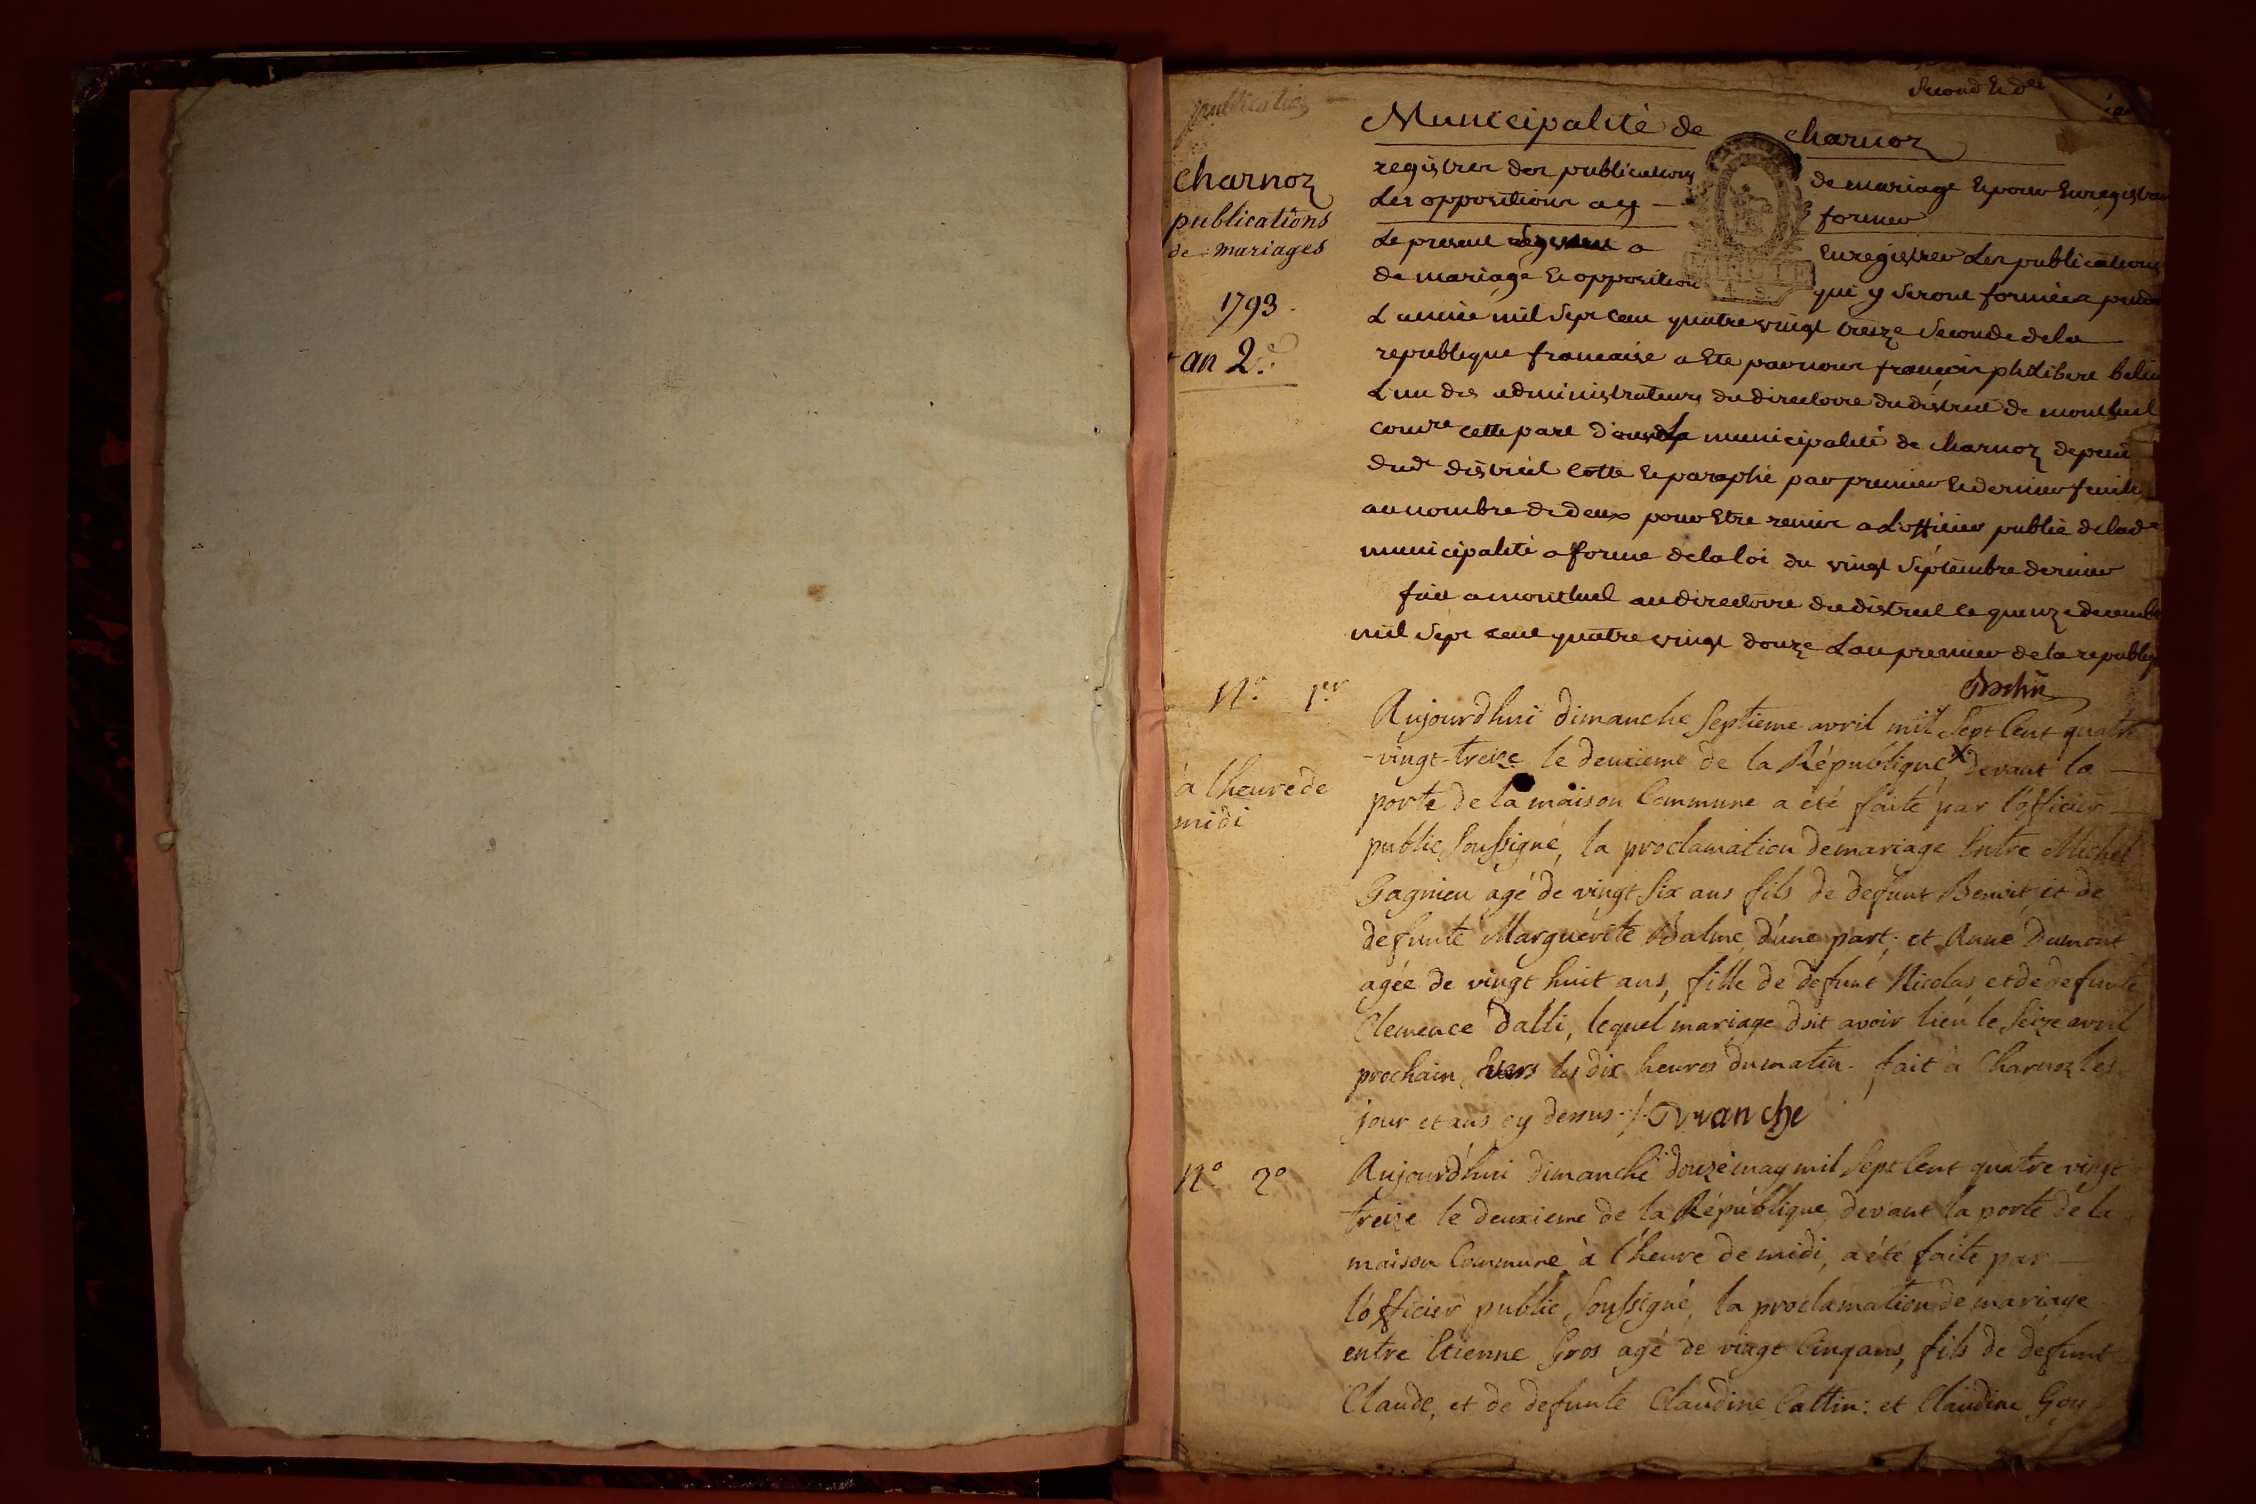 second et der
publication
Municipalité de charnoz
charnoz
publications
de mariages
1793.
an 2e.
registres des publications de mariage et pour Enregistrer
Les oppositions a y former
Le present registre a Enregistrer Les publications
de mariage Et opposition qui y seront formées pend
L année mil sept cent quatre vingt treize seconde de la
republique francaise a Ete par nous françois philibert belin
L'un des administrateurs du directoire du district de montluel
comre cette part d'ans La municipalité de charnoz depend
dud district Cotté Et paraphé par premier Et dernier feuill
au nombre de deux pour Etre remis a L'officier public de lade
municipalité a forme de la loi du vingt septembre dernier
fait a montluel au directoire du district ce quinze decemb
mil sept cent quatre vingt douze L'an premier de la republiq
Belin
No. 1er
Aujourdhui dimanche septieme avril mil sept Cent quatre
-vingt-treize le deuxieme de la République X devant la
à l'heure de
midi
porte de la maison Commune a été faite par l'officier
public soussigné, la proclamation de mariage Entre Michel
Gagnieu agé de vingt six ans fils de defunt Benoit et de
defunte Marguerite Balme, d'une part; et Anne Dumont
agée de vingt huit ans, fille de defunt Nicolas et de defunte
Clemence Dalli, lequel mariage doit avoir lieu le seize avril
prochain vers les dix heures du matin. fait à Charnoz les
jour et ans cy dessus ./. Dvranche
No 2o
Aujourd'hui dimanche douze may mil sept Cent quatre vingt
treize le deuxieme de la République, devant la porte de la
maison Commune à l'heure de midi, a été faite par
l'officier public soussigné, la proclamation de mariage
entre Etienne Gros agé de vingt Cinq ans, fils de defunt
Claude, et de defunte Claudine Cattin: et Claudine Goy